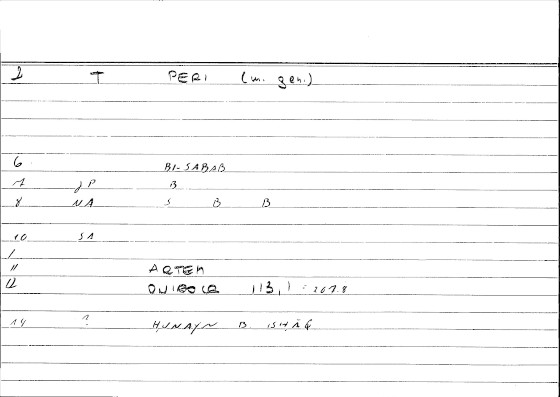 2 T PERI (m. gen.)
6 BI-SABAB
7 JP B
8 NA S B B
10 SA
1
11 ARTEM
12 ONIROCR 113,1 = 207.8
14 ? ḤUNAYN B. ISḤĀQ